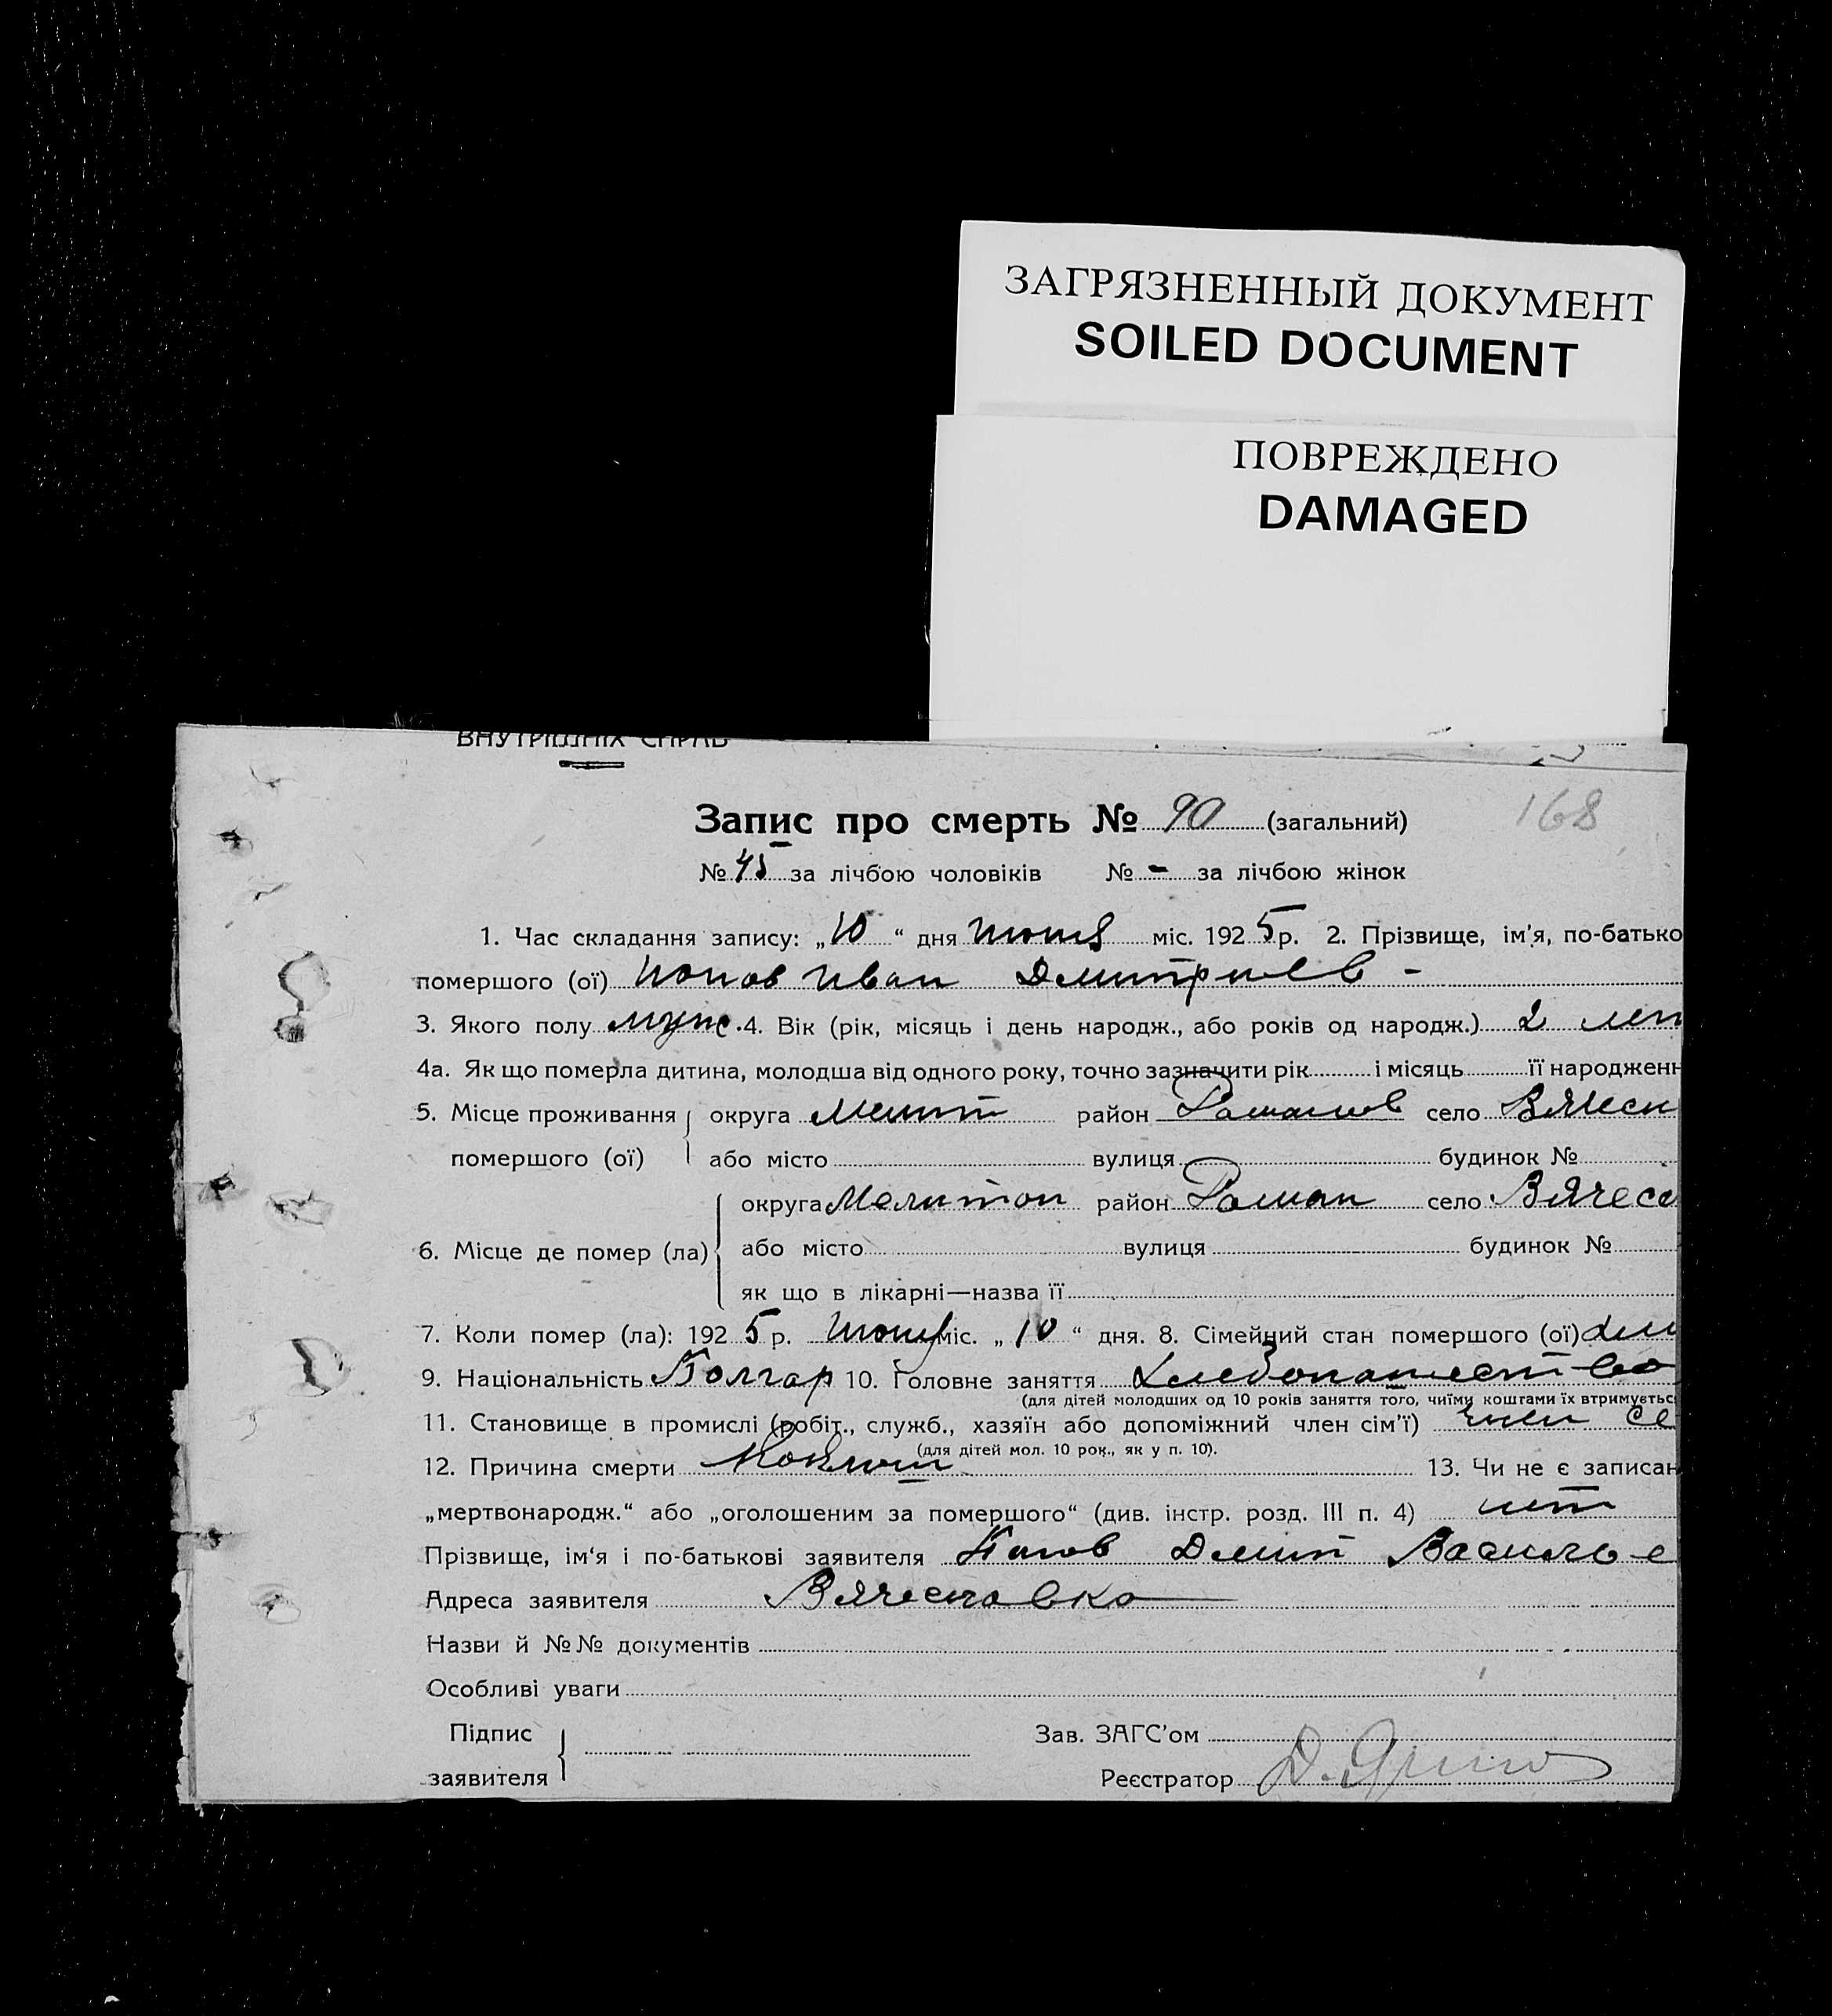 ЗАГРЯЗНЕННЫЙ ДОКУМЕНТ
SOILED DOCUMENT
ПОВРЕЖДЕНО
DAMAGED
ВНУТРІШНІХ СПРАВ
Запис про смерть № 90 (загальний) 168
№ 45 за лічбою чоловіків № - за лічбою жінок
1. Час складання запису: „10“ дня июня міс. 1925 р. 2. Прізвище, ім’я, по-батько
помершого (ої) Попов Иван Дмитриев -
3. Якого полу муж. 4. Вік (рік, місяць і день народж., або років од народж.) 2 лет
4а. Як що померла дитина, молодша від одного року, точно зазначити рік і місяць її народженн
5. Місце проживання округа Мелит район Романов село Вячесл
помершого (ої) або місто вулиця будинок №
округа Мелитоп район Роман село Вячесл
6. Місце де помер (ла) або місто вулиця будинок №
як що в лікарні—назва її
7. Коли помер (ла): 1925 р. июня міс. „10“ дня. 8. Сімейний стан помершого (ої)
9. Національність Болгар 10. Головне заняття Хлебопашество
(для дітей молодших од 10 років заняття того, чиїми коштами їх втримуєтьс
11. Становище в промислі (робіт., служб., хазяїн або допоміжний член сім’ї) член се
(для дітей мол. 10 рок., як у п. 10).
12. Причина смерти Коклюш 13. Чи не є записан
„мертвонародж.“ або „оголошеним за помершого“ (див. інстр. розд. III п. 4) нет
Прізвище, ім‘я і по-батькові заявителя Попов Дмит Василье
Адреса заявителя Вячеславка
Назви й №№ документів
Особливі уваги
Підпис Зав. ЗАГС’ом
заявителя Реєстратор